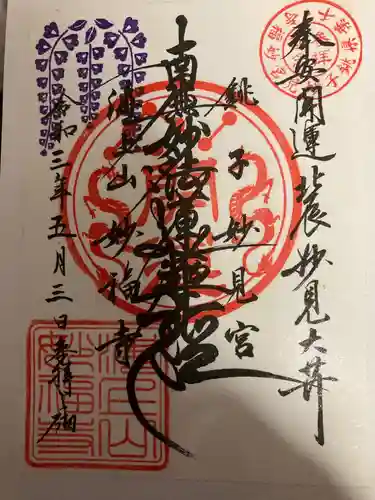 奉安開運北辰妙見大菩薩
銚子妙見宮
南無妙法蓮華経
海上山妙福寺
令和三年五月三日奉拝